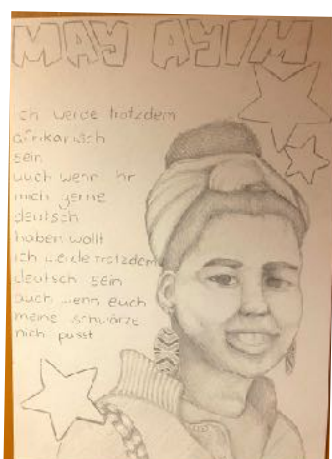 MAY AYIM
ich werde trotzdem
afrikanisch
sein
auch wenn ihr
mich gerne
deutsch
haben wollt
ich werde trotzdem
deutsch sein
auch wenn euch
meine schwärze
nich passt